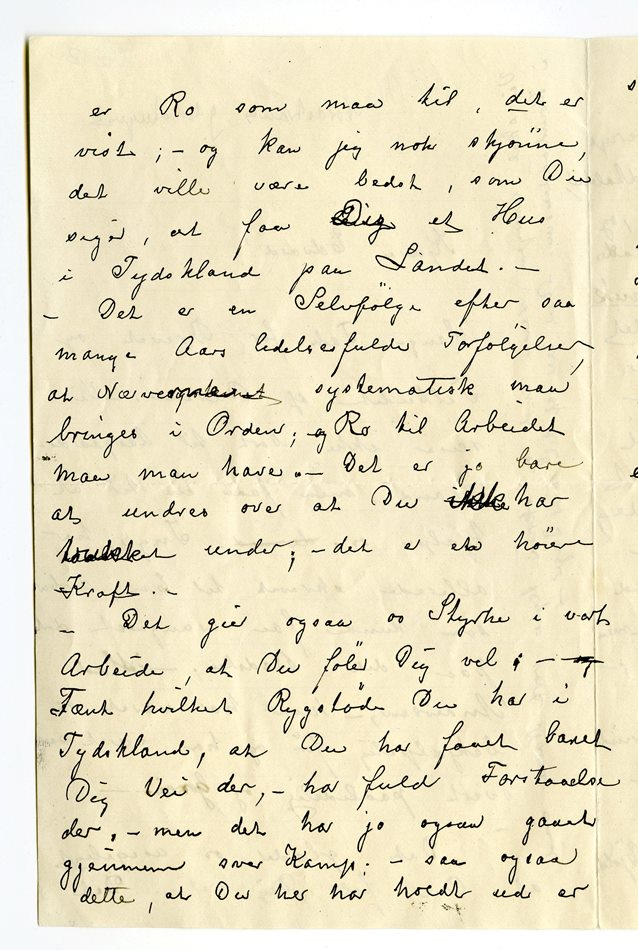 er Ro som maa til, det er
vist; – og kan jeg nok skjønne,
det ville være bedst, som Du
siger, at faa Dig et Hus
i Tydskland paa Landet. –
– Det er en Selvfølge efter saa
mange Aars lidelsesfulde Forfølgelser,
at Nerve systematisk maa
bringes i Orden; og Ro til Arbeidet
maa man have. – Det er jo bare
at undres over at Du ikke har
under; – det er en høiere
Kraft. –
– Det gir ogsaa os Styrke i vort
Arbeide, at Du føler Dig vel; –
Tænk hvilket Rygstøde Du har i
Tydskland, at Du har faaet banet
Dig Vei der, – har fuld Forstaaelse
der. – men det har jo ogsaa gaaet
gjennem svær Kamp; – saa ogsaa
dette, at Du her har holdt ud er